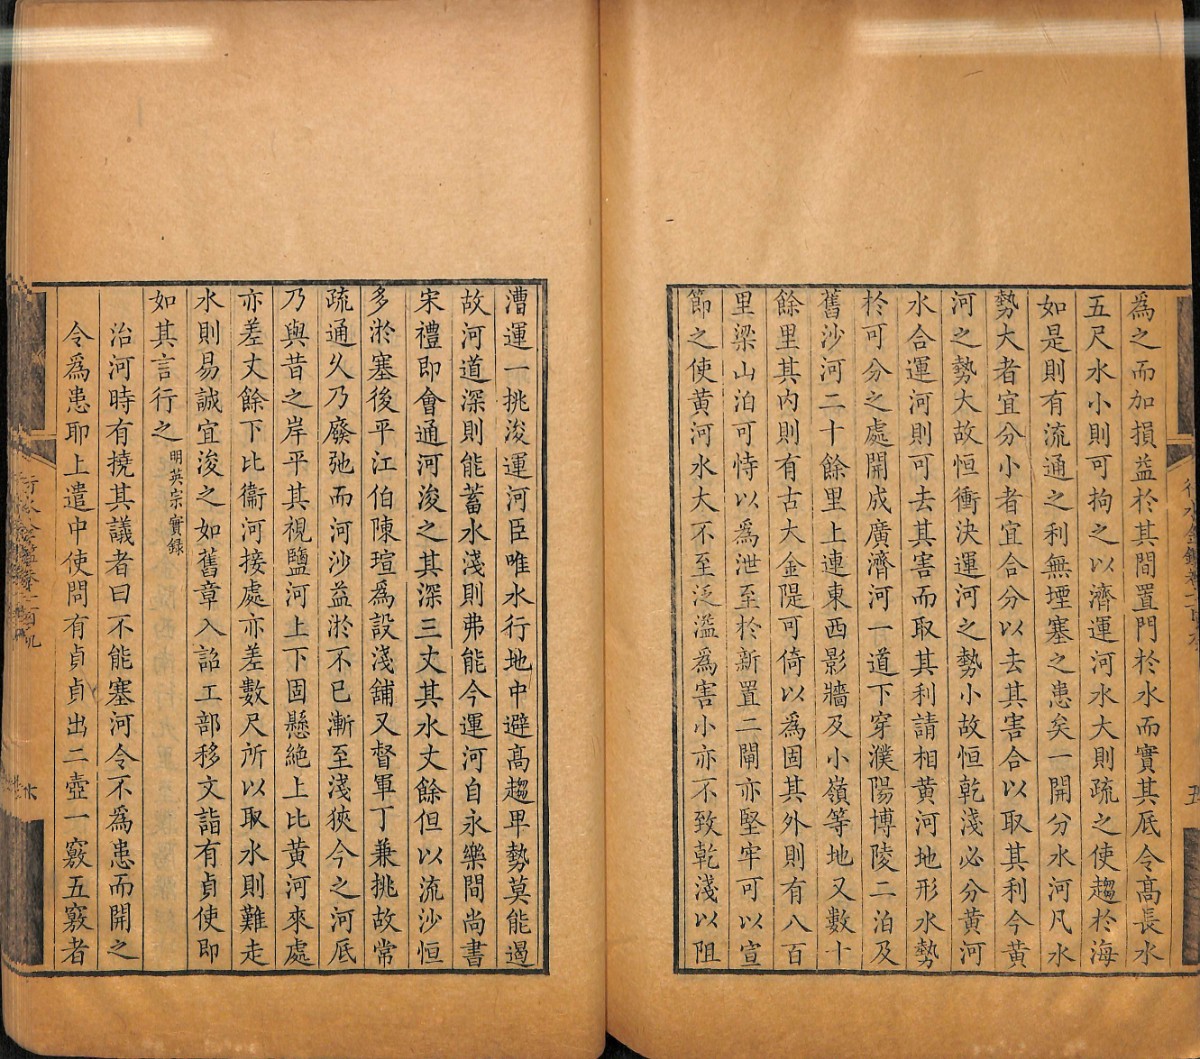 為之而加損益於其間置門於水而實其底令髙長水
五尺水小則可拘之以濟運河水大則疏之使趨於海
如是則有流通之利無堙塞之患矣一開分水河凡水
勢大者宜分小者宜合分以去其害合以取其利今黃
河之勢大故恒衝決運河之勢小故恒乾淺必分黃河
水合運河則可去其害而取其利請相黃河地形水勢
於可分之處開成廣濟河一道下穿濮陽博陵二泊及
舊沙河二十餘里上連東西影牆及小嶺等地又數十
餘里其内則有古大金隄可倚以為固其外則有八百
里梁山泊可恃以為泄至於新置二閘亦堅牢可以宣
節之使黃河水大不至泛濫為害小亦不致乾淺以阻
漕運一挑浚運河臣唯水行地中避髙趨卑勢莫能遏
故河道深則能蓄水淺則弗能今運河自永樂間尚書
宋禮即會通河浚之其深三丈其水丈餘但以流沙恒
多淤塞後平江伯陳瑄為設淺舖又督軍丁兼挑故常
疏通久乃廢弛而河沙益淤不已漸至淺狹今之河底
乃與昔之岸平其視鹽河上下固懸絶上比黃河來處
亦差丈餘下比衞河接處亦差數尺所以取水則難走
水則易誠宜浚之如舊章入詔工部移文詣有貞使即
如其言行之明英宗實錄
治河時有撓其議者曰不能塞河令不為患而開之
令爲患耶上遣中使問有貞貞出二壺一竅五竅者